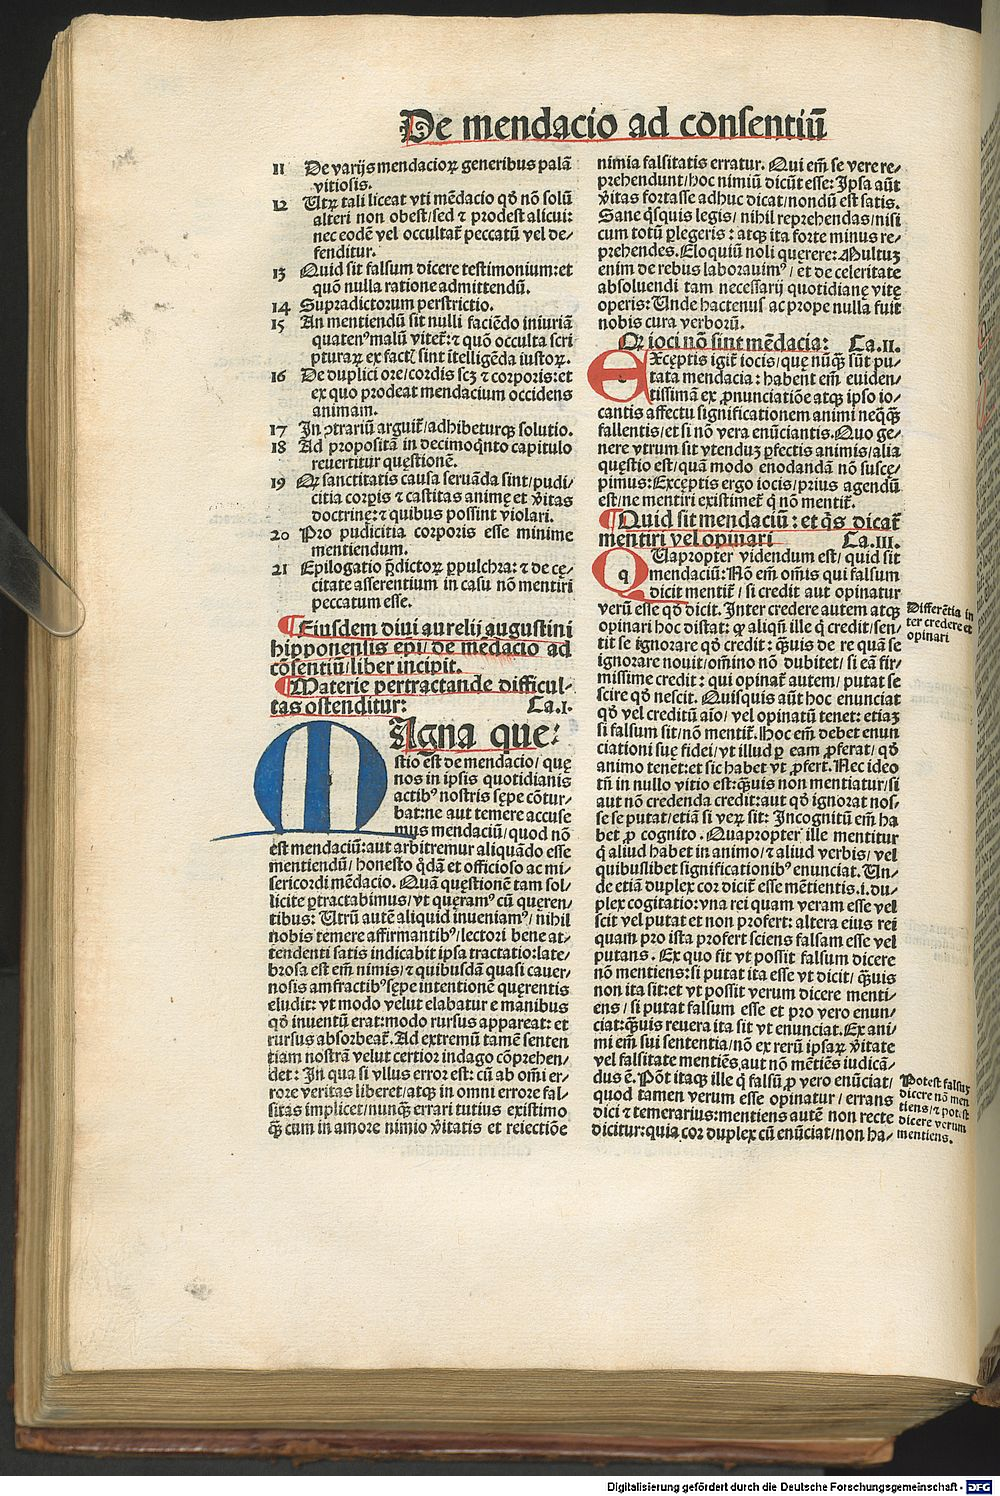 De mendacio ad consentiū
11 De varijs mendacioꝝ generibus palā
vitiosis.
12 Utrꝫ tali liceat vti mēdacio qḋ nō solū
alteri non obest/sed ⁊ prodest alicui:
nec eodē vel occultat̄ peccatū vel de⸗
fenditur.
13 Quid sit falsum dicere testimonium: et
quō nulla ratione admittendū.
14 Supradictorum perstrictio.
15 An mentiendū sit nulli faciēdo iniuriā
quatenꝰ malū vitet̄: ⁊ quō occulta scri
pturaꝝ ex factꝭ sint ītelligēda iustoꝝ.
16 De duplici ore/cordis scꝫ ⁊ corporis: et
ex quo prodeat mendacium occidens
animam.
17 In ꝯtrariū arguit̄/adhibeturqꝫ solutio.
18 Ad propositā in decimoqͥnto capitulo
reuertitur quęstionē.
19 Qꝝ sanctitatis causa seruāda sint/pudi⸗
citia corꝑis ⁊ castitas animę et v̄itas
doctrinę: ⁊ quibus possint violari.
20 Pro pudicitia corporis esse minime
mentiendum.
21 Epilogatio p̄dictoꝝ ꝑpulchra: ⁊ de cę⸗
citate asserentium in casu nō mentiri
peccatum esse.
¶Eiusdem diui aurelij augustini
hipponensis ep̄i/de mēdacio ad
cōsentiū/liber incipit.
¶Materie pertractande difficul⸗
tas ostenditur: Ca.I.
MAgna que⸗
stio est de mendacio/quę
nos in ipsis quotidianis
actibꝰ nostris sępe cōtur⸗
bat: ne aut temere accuse
mus mendaciū/quod nō
est mendaciū: aut arbitremur aliquādo esse
mentiendū/honesto qͦdā et officioso ac mi⸗
sericordi mēdacio. Quā quęstionē tam sol⸗
licite ꝑtractabimus/vt quęramꝰ cū quęren⸗
tibus: Utrū autē aliquid inueniamꝰ/nihil
nobis temere affirmantibꝰ/lectori bene at⸗
tendenti satis indicabit ipsa tractatio: late⸗
brosa est em̄ nimis/⁊ quibusdā quasi cauer⸗
nosis amfractibꝰ sępe intentionē quęrentis
eludit: vt modo velut elabatur e manibus
qḋ inuentū erat: modo rursus appareat: et
rursus absorbeat̄. Ad extremū tamē senten
tiam nostrā velut certior indago cōprehen⸗
det: In qua si vllus error est: cū ab om̄i er⸗
rore veritas liberet/atqꝫ in omni errore fal⸗
sitas implicet/nunqͣꝫ errari tutius existimo
qͣꝫ cum in amore nimio v̄itatis et reiectiōe
nimia falsitatis erratur. Qui em̄ se vere re⸗
prehendunt/hoc nimiū dicūt esse: Ipsa aūt
v̄itas fortasse adhuc dicat/nondū est satis.
Sane qͥsquis legis/nihil reprehendas/nisi
cum totū ꝑlegeris: atqꝫ ita forte minus re⸗
prehendes. Eloquiū noli quęrere: Multuꝫ
enim de rebus laborauimꝰ/et de celeritate
absoluendi tam necessarij quotidianę vitę
operis: Unde hactenus ac prope nulla fuit
nobis cura verborū.
Qꝝ ioci nō sint mēdacia: Ca.II.
EXceptis igit̄ iocis/quę nūqͣꝫ sūt pu⸗
tata mendacia: habent em̄ euiden⸗
tissimā ex ꝓnunciatiōe atqꝫ ipso io⸗
cantis affectu significationem animi neqͣꝫqͣꝫ
fallentis/et si nō vera enūciantis. Quo ge⸗
nere vtrum sit vtenduꝫ ꝑfectis animis/alia
quęstio est/quā modo enodandā nō suscę⸗
pimus: Exceptis ergo iocis/prius agendū
est/ne mentiri existimet̄ q̇ nō mentit̄.
¶Quid sit mendaciū: et qͥs dicat̄
mentiri vel opinari Ca.III.
QUapropter videndum est/quid sit
mendaciū: Nō em̄ om̄is qui falsum
dicit mentit̄/si credit aut opinatur
verū esse qḋ dicit. Inter credere autem atqꝫ
opinari hoc distat: qꝫ aliqn̄ ille q̇ credit/sen⸗
tit se ignorare qḋ credit: quis de re quā se
ignorare nouit/om̄ino nō dubitet/si eā fir⸗
missime credit: qui opinat̄ autem/putat se
scire qḋ nescit. Quisquis aūt hoc enunciat
qḋ vel creditū aīo/vel opinatū tenet: etiaꝫ
si falsum sit/nō mentit̄. Hoc em̄ debet enun
ciationi sue fidei/vt illud ꝑ eam ꝓferat/qḋ
animo tenet: et sic habet vt ꝓfert. Nec ideo
tn̄ in nullo vitio est: qͣuis non mentiatur/si
aut nō credenda credit: aut qḋ ignorat nos⸗
se se putat/etiā si veꝝ sit: Incognitū em̄ ha
bet ꝓ cognito. Quapropter ille mentitur
q̇ aliud habet in animo/⁊ aliud verbis/vel
quibuslibet significationibꝰ enunciat. Un⸗
de etiā duplex cor dicit̄ esse mētientis.i.du⸗
plex cogitatio: vna rei quam veram esse vel
scit vel putat et non profert: altera eius rei
quam pro ista profert sciens falsam esse vel
putans. Ex quo fit vt possit falsum dicere
nō mentiens: si putat ita esse vt dicit/qͣuis
non ita sit: et vt possit verum dicere menti⸗
ens/si putat falsum esse et pro vero enun⸗
ciat: qͣuis reuera ita sit vt enunciat. Ex ani⸗
mi em̄ sui sententia/nō ex rerū ipsaꝝ v̄itate
vel falsitate mentiēs aut nō mētiēs iudicā⸗
dus ē. Pōt itaqꝫ ille q̇ falsū ꝓ vero enūciat/
quod tamen verum esse opinatur/errans
dici ⁊ temerarius: mentiens autē non recte
dicitur: quia cor duplex cū enūciat/non ha⸗
Differētia in
ter credere et
opinari
Potest falsuꝫ
dicere nō men
tiens/⁊ potest
dicere verum
mentiens.
Digitalisierung gefördert durch die Deutsche Forschungsgemeinschaft - DFG